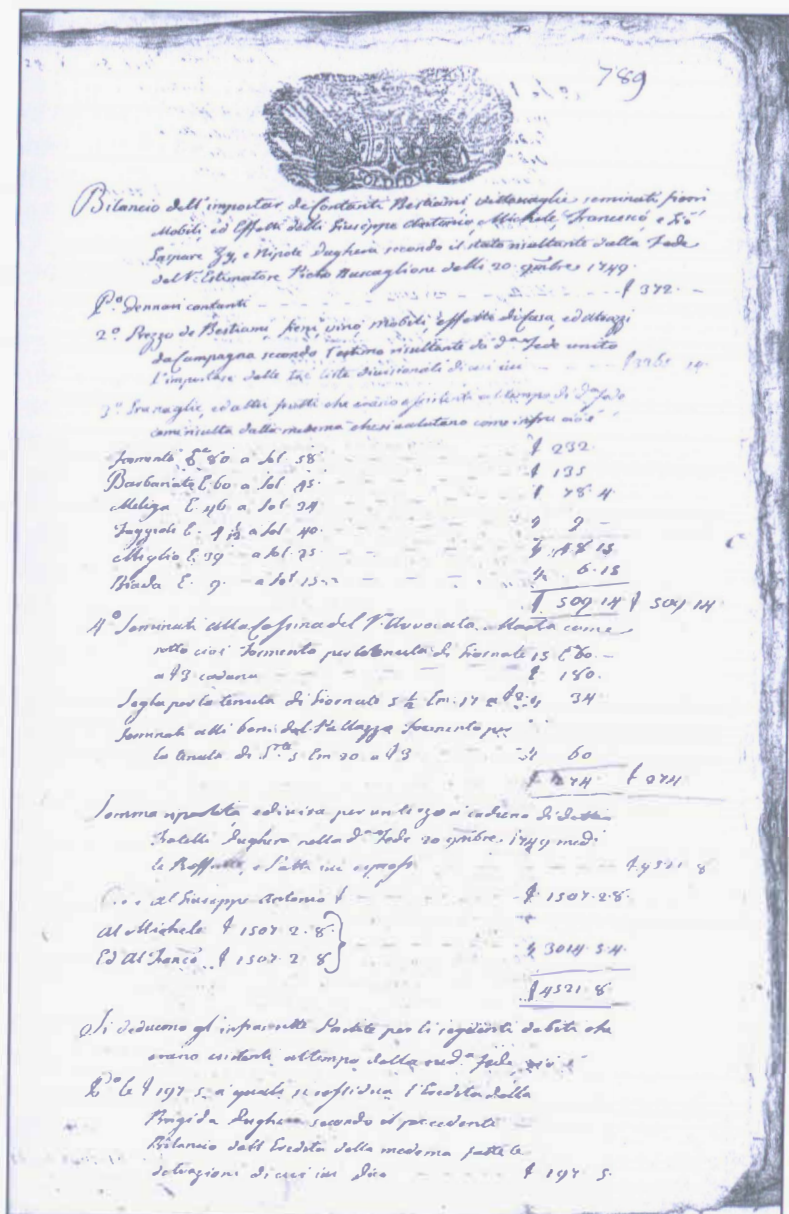 789
Bilancio dell'importar de Contanti Bestiami vittovaglie seminati fieni
Mobili, ed Effetti delli Giuseppe Antonio, Michele, Francesco, e Gio
Gaspare Zy, e Nipote Dughera secondo il stato risultante dalla Fede
del N. Estimatore Pietro Buscaglione delli 20 9mbre 1749.
P.º Dennari contanti £ 372
2º Prezzo de Bestiami, fieni, vino, mobili, effetti di casa, ed attrazzi
da Campagna secondo l'estimo risultante da d.ª Fede unito
l'importare delle liste divisionali di cui ivi
3º Granaglie, ed altri frutti che erano esistenti al tempo di d.ª Fede
come risulta dalla medema che si valutano come infra cioè
formento E. 80 a sol 58 £ 232
Barbariato E. 60 a sol 45 £ 135
Meliga E. 46 a sol 34 £ 78 4
Faggioli E. 4 1/2 a sol 40 £ 9
Miglio E. 39 a sol 25 £ 48 15
Biada E. 9 a sol 15 £ 6 15
£ 509 14 £ 509 14
4º Seminati alla Cassina del V. Avvocato come
sotto cioè formento per la tenuta di Giornate 15 E. 60
a £ 3 caduna £ 180
Segla per la tenuta di Giornate 5 1/2 Em. 17 a £ 2 34
Seminati alli beni del Pallazzo formento per
la tenuta di 5 Em 20 a £ 3 60
£ 274 £ 274
Somma ripartita e divisa per un terzo a caduno di detti
Fratelli Dughera nella d.ª Fede 20 9mbre 1749
e l'atti ivi £ 4521 8
al Giuseppe Antonio £ 1507 2 8
Al Michele £ 1507 2 8
Ed Al Franco £ 1507 2 8 £ 3014 5 4
£ 4521 8
Si deducono gl'infrascritte Partite per li seguenti debiti che
erano esistenti al tempo della sud.ª fede cioè
P.º le £ 197 5 a quali l'Eredità della
Brigida Dughera secondo il precedente
Bilancio dell'Eredità della medema fatte le
detrazioni di cui ivi Dico £ 197 5